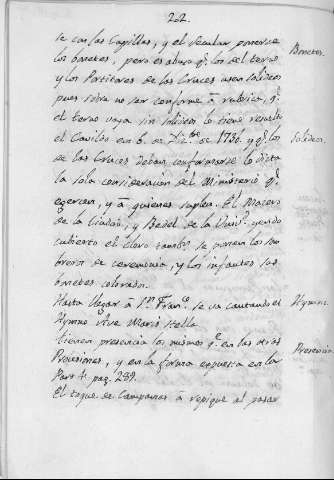 22.
se con las Capillas, y el secular ponerse
los bonetes, pero es abuso q.e los del terno
y los Portadores de las Cruces usen solideos
pues sobra no ser conforme á rubrica, q.e
el terno vaya sin solideos lo tiene resuelto
el Cavildo en 6. de Dic.bre de 1736. y q.e los
de las Cruces devan conformarse lo dicta
la sola consideracion del Ministerio q.e
egercen, y á quienes suplen. El Macero
de la Ciudad, y Bedel de la Univ.d yendo
cubierto el Clero tambn. se ponen los som-
breros de ceremonia, y los infantes sus
bonetes colorados.
Hasta llegar á Sn. Franco. se va cantando el
Hymno Ave Maris Stella
Tienen presencia los mismos q.e en las otras
Procesiones, y en la forma expuesta en la
Part. 4. pag. 289.
El toque de Campanas á repique al pasar
Bonetes.
Solideos.
Hymno.
Presencia.